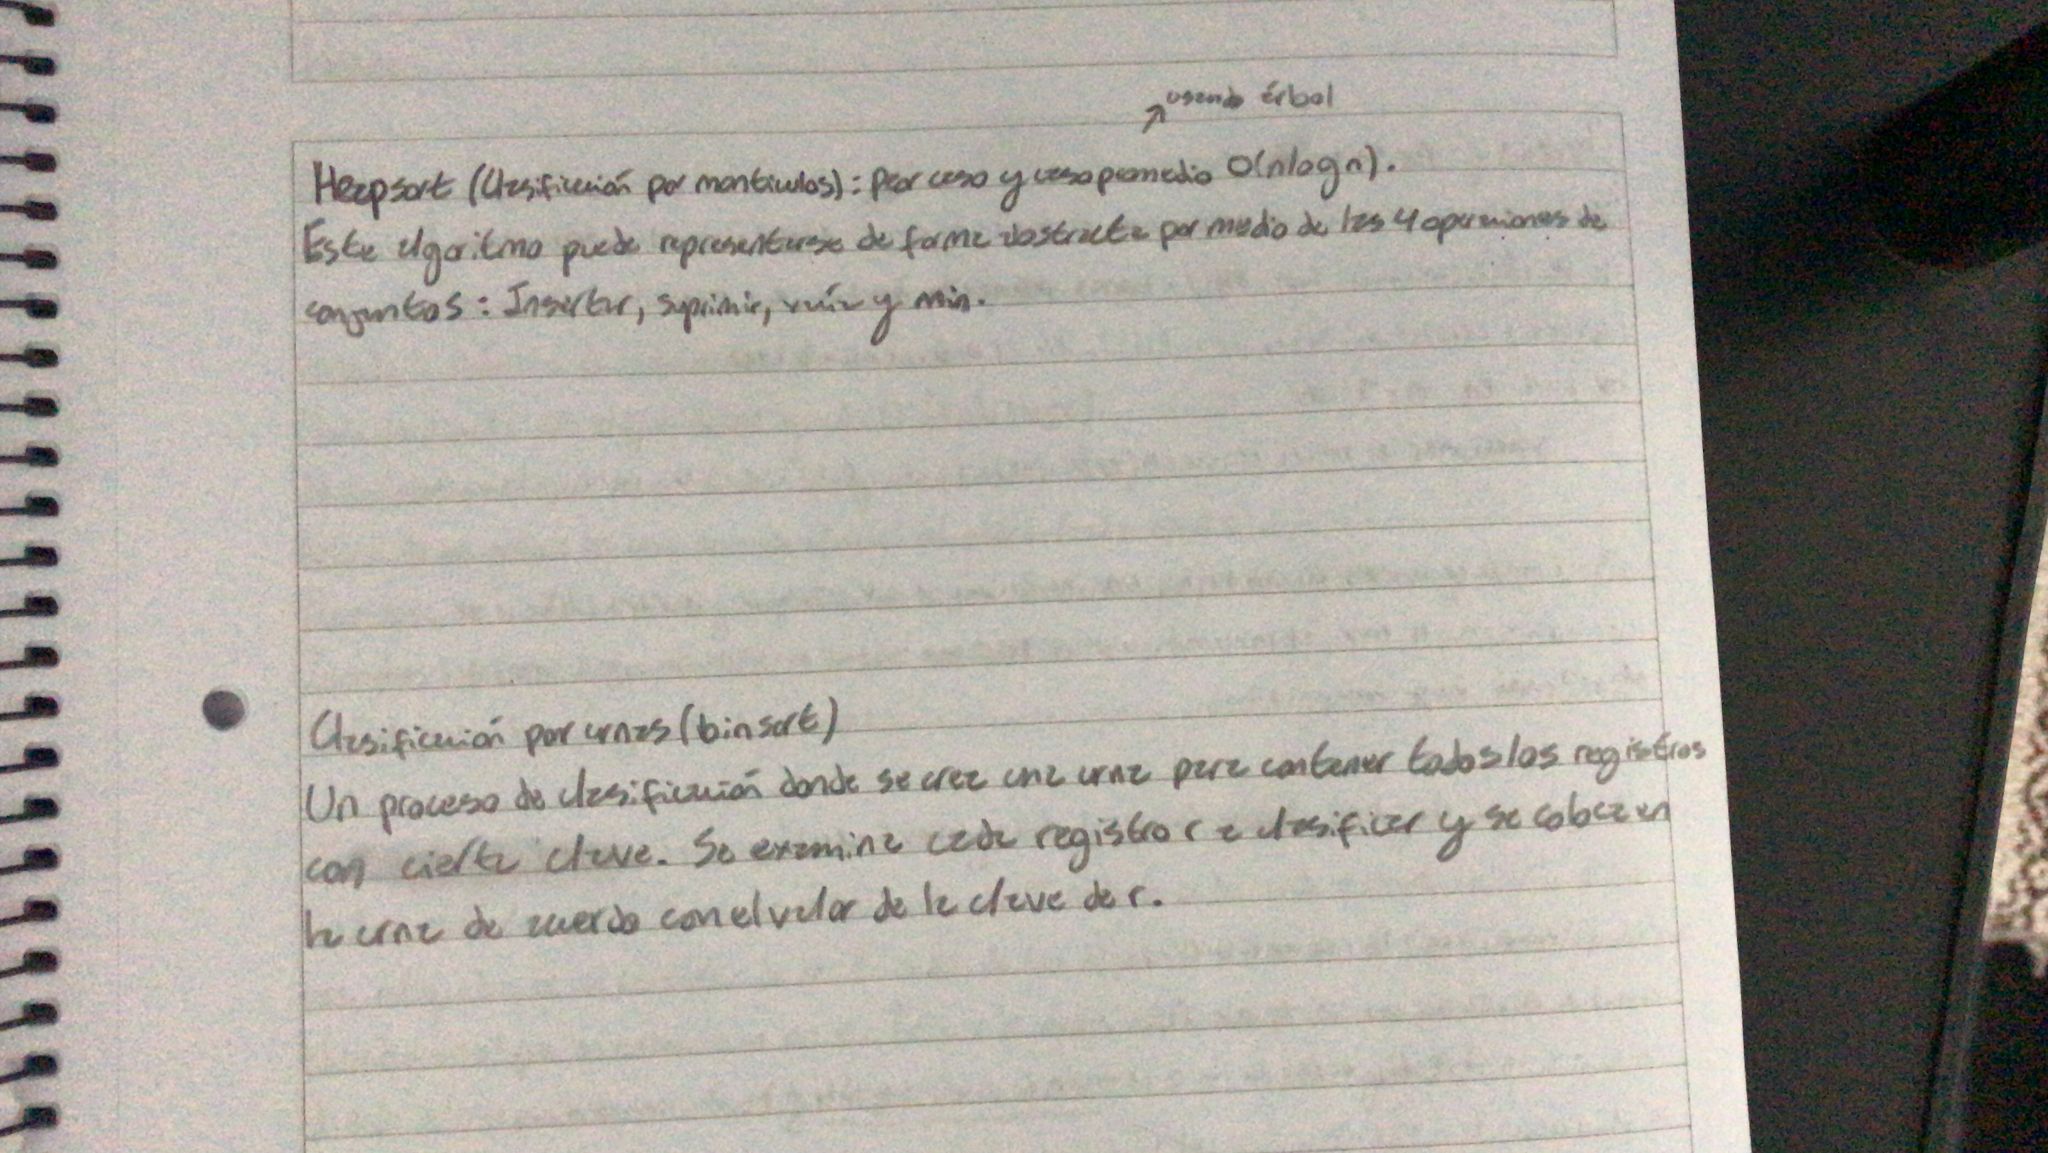 usando árbol
Heapsort (Clasificación por montículos): peor caso y caso promedio O(nlogn).
Este algoritmo puede representarse de forma abstracta por medio de las 4 operaciones de
conjuntos: Insertar, suprimir, vacía y min.
Clasificación por urnas (binsort)
Un proceso de clasificación donde se crea una urna para contener todos los registros
con cierta clave. Se examina cada registro r a clasificar y se coloca en
la urna de acuerdo con el valor de la clave de r.